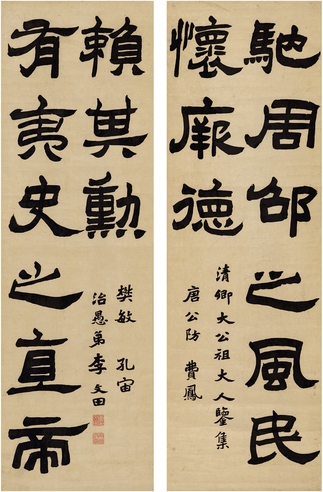 馳周邵之風民
懷厥德
清卿大公祖大人鑒集
唐公防 費鳳
有夷史之直帝
賴其勳
樊敏 孔宙
治愚弟李文田